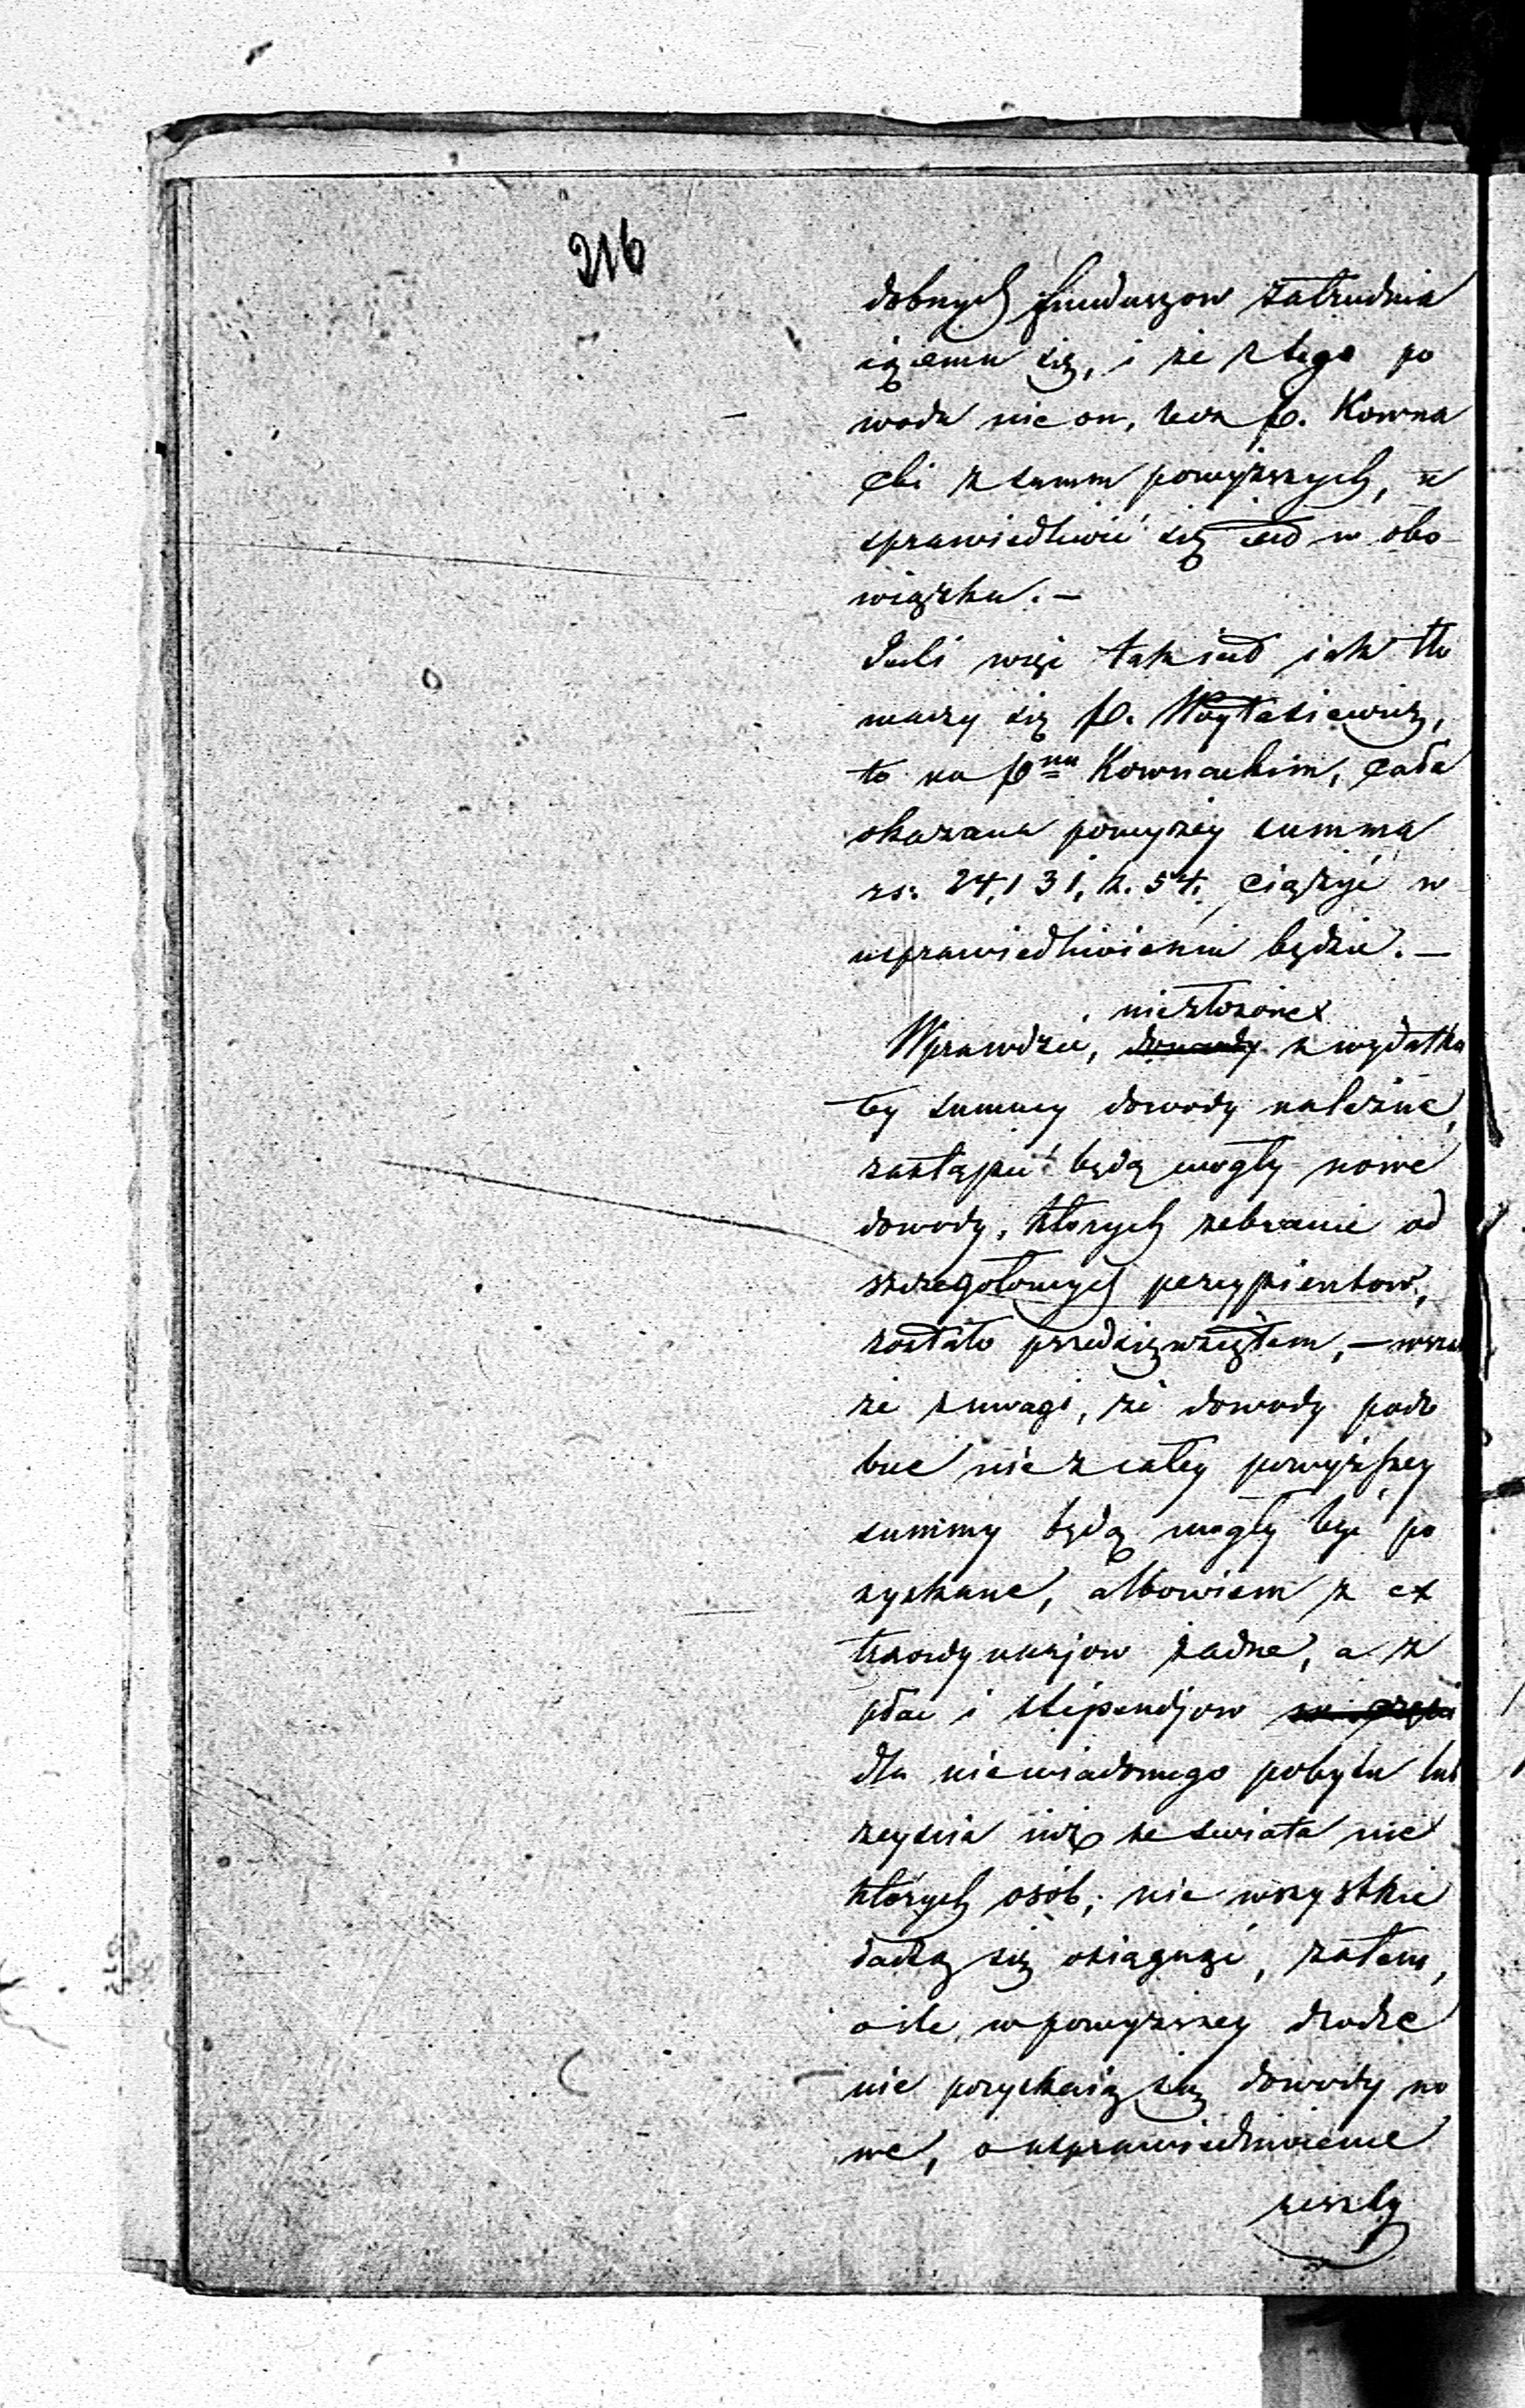 216
dobnych funduszow zatrudnia
iącemu się, i że z tego po
wodu nie on, lecz p. Kowna
cki z summ powyższych, u
sprawiedliwić się iest w obo
wiązku. –
Jeśli więc tak iest iak tło
maczy się p. Woytasiewicz,
to na p<sup>nu</sup> Kownackim, cała
okazana powyżey summa
rs: 24,131, k. 54. ciążyć w
usprawiedliwieniu będzie. –
niezłożone
Wprawdzie, dowody z wydatku
tey summy dowody należne,
zastąpić będą mogły nowe
dowody, których zebranie od
szczegołowych percypientow,
zostało przedsięwziętem, – wszak
że z uwagi, że dowody podo
bne nie z całey powyższey
summy będą mogły być po
zyskane, albowiem z ex
traordynaryjow żadne, a z
płac i stipendjow
dla niewiadomego pobytu lub
zeyścia iuż ze swiata nie
których osób, nie wszystkie
dadzą się osiągnąć, zatem,
o ile w powyższey drodze
nie pozyskaią się dowody no
we, o usprawiedliwienie
reszty